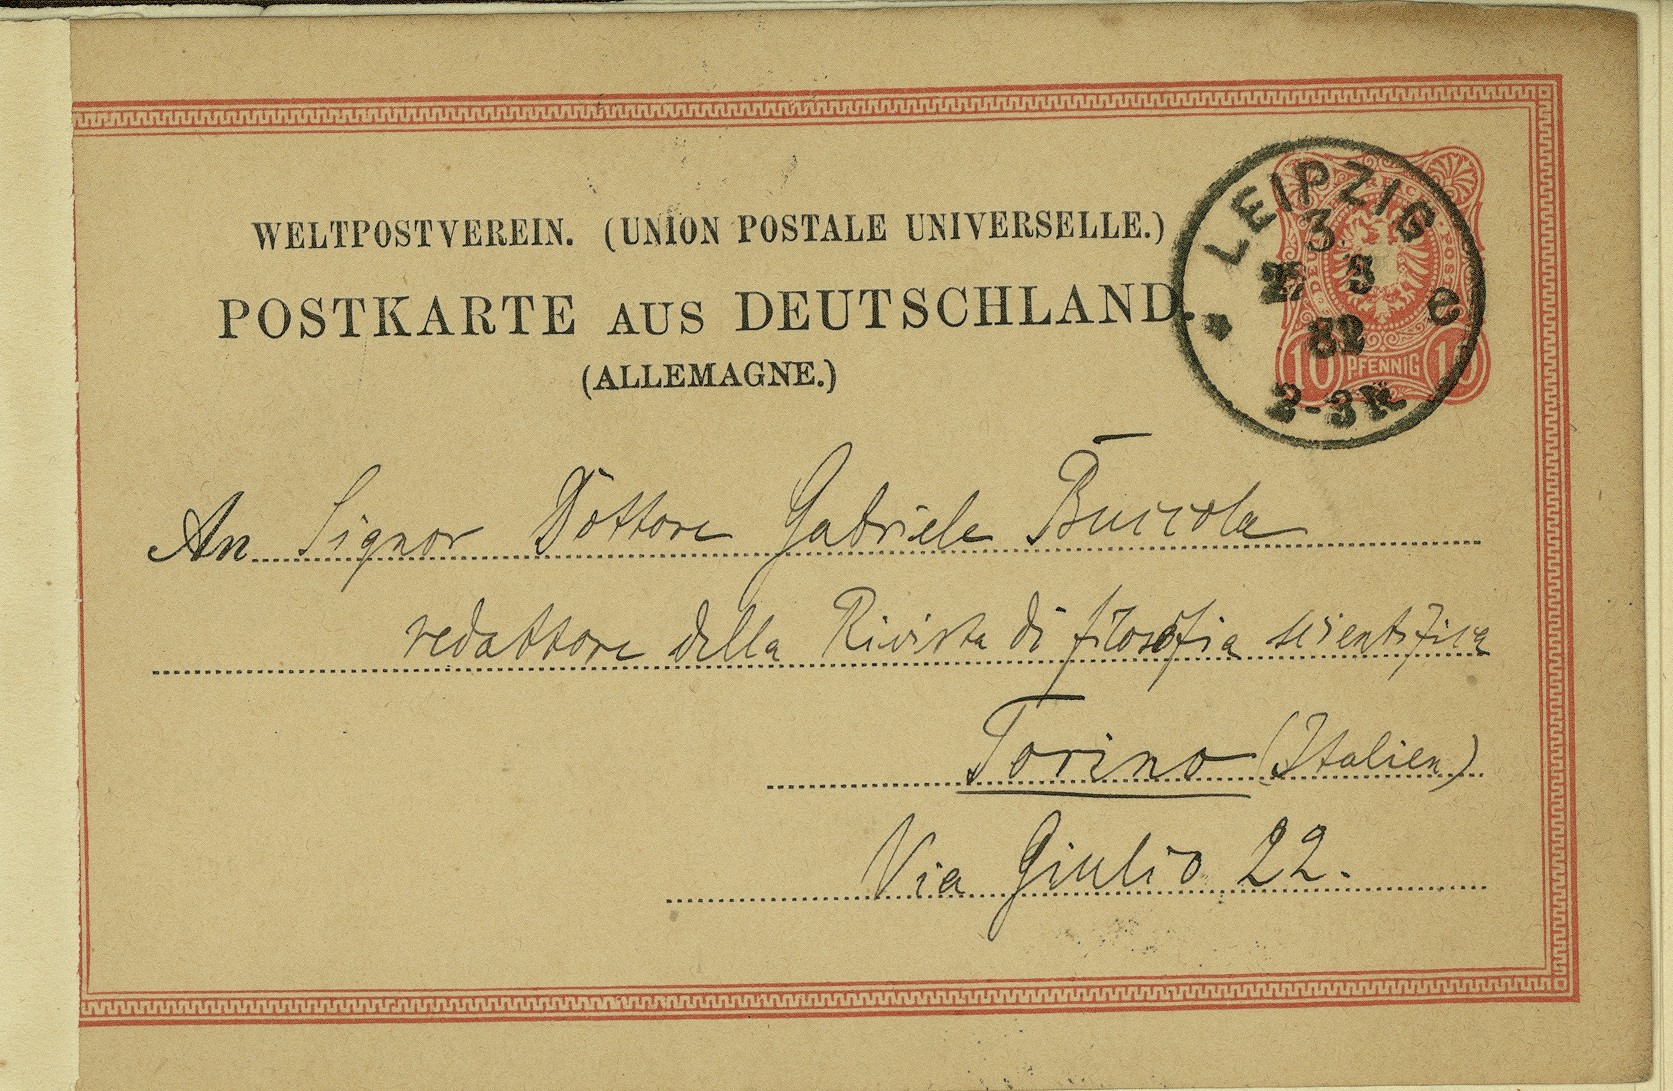 WELTPOSTVEREIN. (UNION POSTALE UNIVERSELLE.)
POSTKARTE AUS DEUTSCHLAND.
(ALLEMAGNE.)
LEIPZIG
3
3
82
2-3N
e
10 PFENNIG 10
An Signor Dottore Gabriele Buccola
redattore della Rivista di filosofia scientifica
Torino (Italien)
Via Giulio 22.